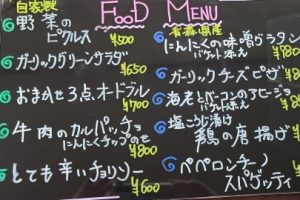 FOOD MENU
自家製
野菜の
ピクルス
¥500
ガーリックグリーンサラダ
¥650
おまかせ3点オードブル
¥700
牛肉のカルパッチョ
にんにくチップのせ
¥800
とても辛いチョリソー
¥600
青森県産
にんにくの味噌グラタン
バケット添え
¥80
ガーリックチーズピザ
¥8
海老とベーコンのアヒージョ
バケット添え
¥8
塩こうじ漬け
鶏の唐揚げ
ペペロンチーノ
スパゲッティ